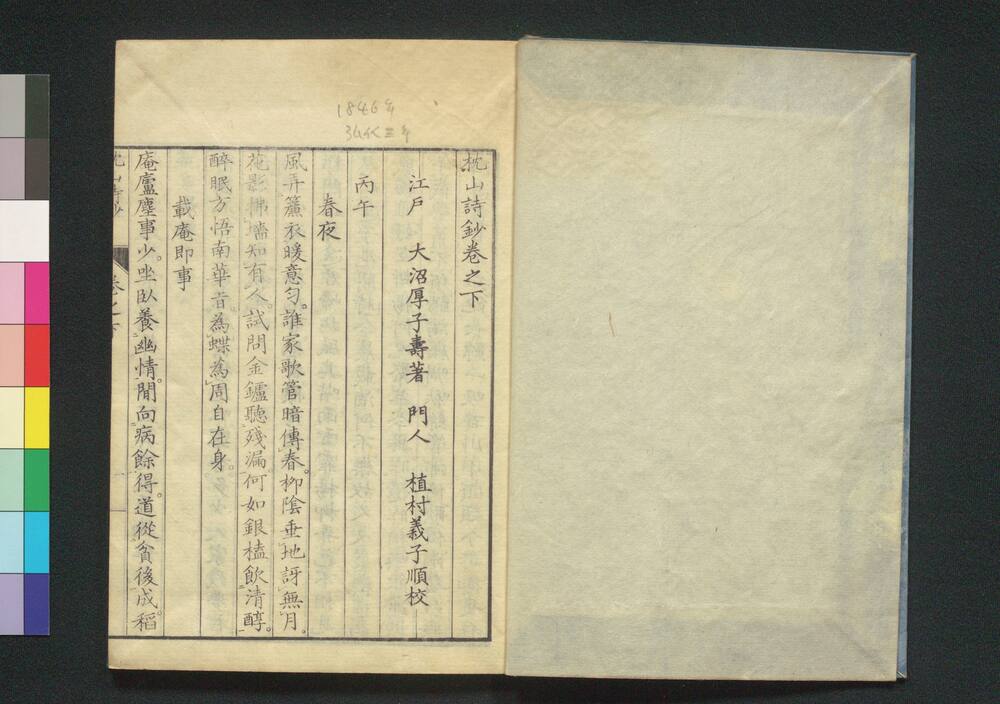 1846年
弘化三年
枕山詩鈔卷之下
江戸 大沼厚子壽著 門人 植村義子順校
丙午
春夜
風弄簾衣暖意勻。誰家歌管暗傳春。柳陰垂地訝無月。
花影拂墻知有人。試問金鑪聽殘漏。何如銀榼飲清醇。
醉眠方悟南華旨。為蝶為周自在身。
載庵即事
庵廬塵事少。坐臥養幽情。閒向病餘得。道從貧後成。稻
枕山詩鈔 卷之下